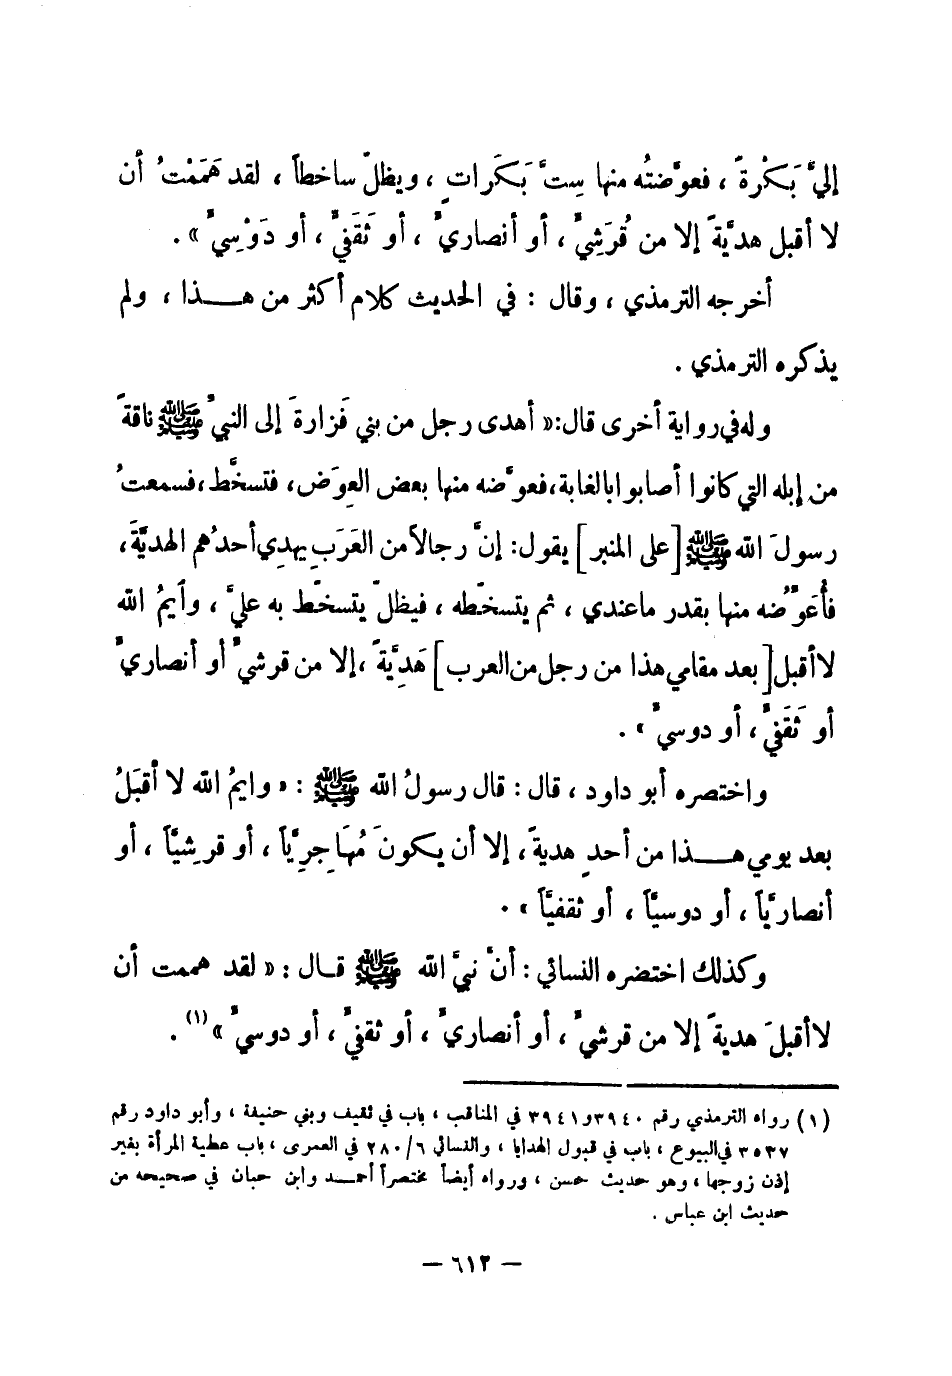 إليَّ بَكْرةً ، فعوَّضتُه منها سِتَّ بَكَرَاتٍ ، ويظلّ ساخطاً ، لقد هَمَمْتُ أن
لا أقبل هديَّةً إلا من قُرَشِيٍّ ، أو أنصاريٍّ ، أو ثَقَفيٍّ ، أو دَوْسِيٍّ » .
أخرجه الترمذي ، وقال : في الحديث كلام أكثر من هـــذا ، ولم
يذكره الترمذي .
وله في رواية أخرى قال: « أهدى رجل من بني فَزارةَ إلى النبيِّ ﷺ ناقةً
من إبله التي كانوا أصابوا بالغابة، فعوَّضه منها بعض العِوَض ، فتسخَّط ، فسمعتُ
رسولَ الله ﷺ [على المنبر] يقول: إنَّ رجالاً من العَرَبِ يهدِي أحدُهم الهديَّةَ ،
فأُعَوِّضُه منها بقدر ما عندي ، ثم يتسخّطه ، فيظلّ يتسخّط به عليَّ ، وأيمُ الله
لا أقبل [بعد مقامي هذا من رجل من العرب] هَدِيَّةً ، إلا من قرشيٍّ أو أنصاريٍّ
أو ثَقَفيٍّ ، أو دوسيٍّ » .
واختصره أبو داود ، قال : قال رسولُ الله ﷺ : « وايمُ الله لا أقبَلُ
بعد يومي هـــذا من أحدٍ هديةً ، إلا أن يكونَ مُهَاجِرِيَّاً ، أو قرشيَّاً ، أو
أنصاريَّاً ، أو دوسيَّاً ، أو ثقفيَّاً » .
وكذلك اختضره النسائي : أنَّ نبيَّ الله ﷺ قـال : « لقد هممت أن
لا أقبلَ هديةً إلا من قرشيٍّ ، أو أنصاريٍّ ، أو ثقفيٍّ ، أو دوسيٍّ » (١) .
(١) رواه الترمذي رقم ٣٩٤٠ و ٣٩٤١ في المناقب ، باب في ثقيف وبني حنيفة ، وأبو داود رقم
٣٥٣٧ في البيوع ، باب في قبول الهدايا ، والنسائي ٢٨٠/٦ في العمرى ، باب عطية المرأة بغير
إذن زوجها ، وهو حديث حسن ، ورواه أيضاً مختصراً أحمـــد وابن حبان في صحيحه من
حديث ابن عباس .
— ٦١٢ —